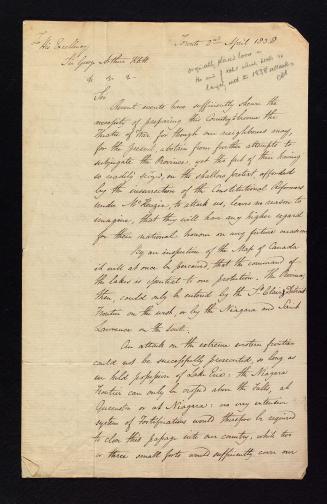 To His Excellency
Sir George Arthur K.C.H.
Toronto 2nd April 1838
originally placed loose in
Sir
Recent events have sufficiently shewn the
necessity of preparing this Country to become the
Theatre of War, for though our neighbours may,
for the present, abstain from further attempts to
subjugate the Province, yet the fact of their having
so readily seized, on the shallow pretext, afforded
by the insurrection of the Constitutional Reformers
under McKenzie, to attack us, leaves no reason to
imagine, that they will have any higher regard
for their national honour on any future occasion
By an inspection of the Map of Canada
it will at once be perceived, that the command of
the lakes is essential to our protection. The Province,
then, could only be entered by the St Clair & Detroit
Frontier on the west, or by the Niagara and Saint
Lawrence on the east.
An attack on the extreme western frontier
could not be successfully prosecuted, so long as
we held possession of Lake Erie: the Niagara
Frontier can only be crossed above the Falls, at
Queenston or at Niagara: no very extensive
system of Fortifications would therefore be required
to close this passage into our country, while two
or three small forts would sufficiently cover our